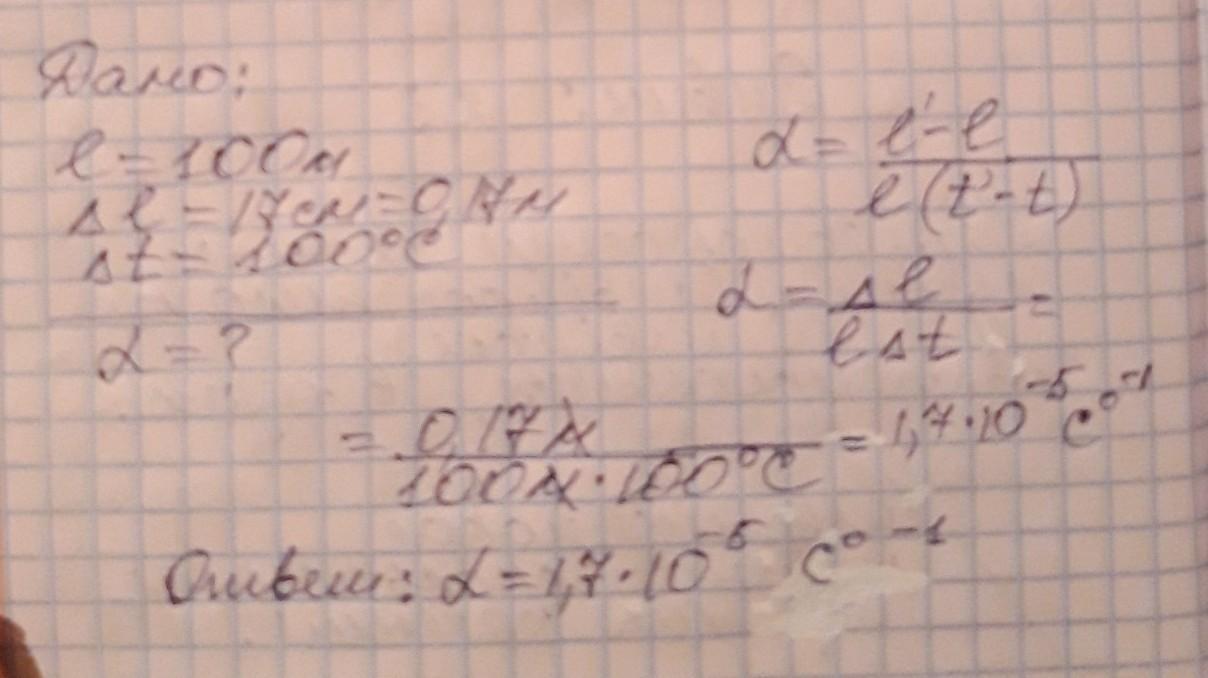 Дано:
l = 100м
Δl = 17см = 0,17м
Δt = 100°C
α = ?
α = l' - l / l(t' - t)
α = Δl / lΔt =
= 0,17м / 100м · 100°C = 1,7 · 10⁻⁵ C°⁻¹
Ответ: α = 1,7 · 10⁻⁵ C°⁻¹